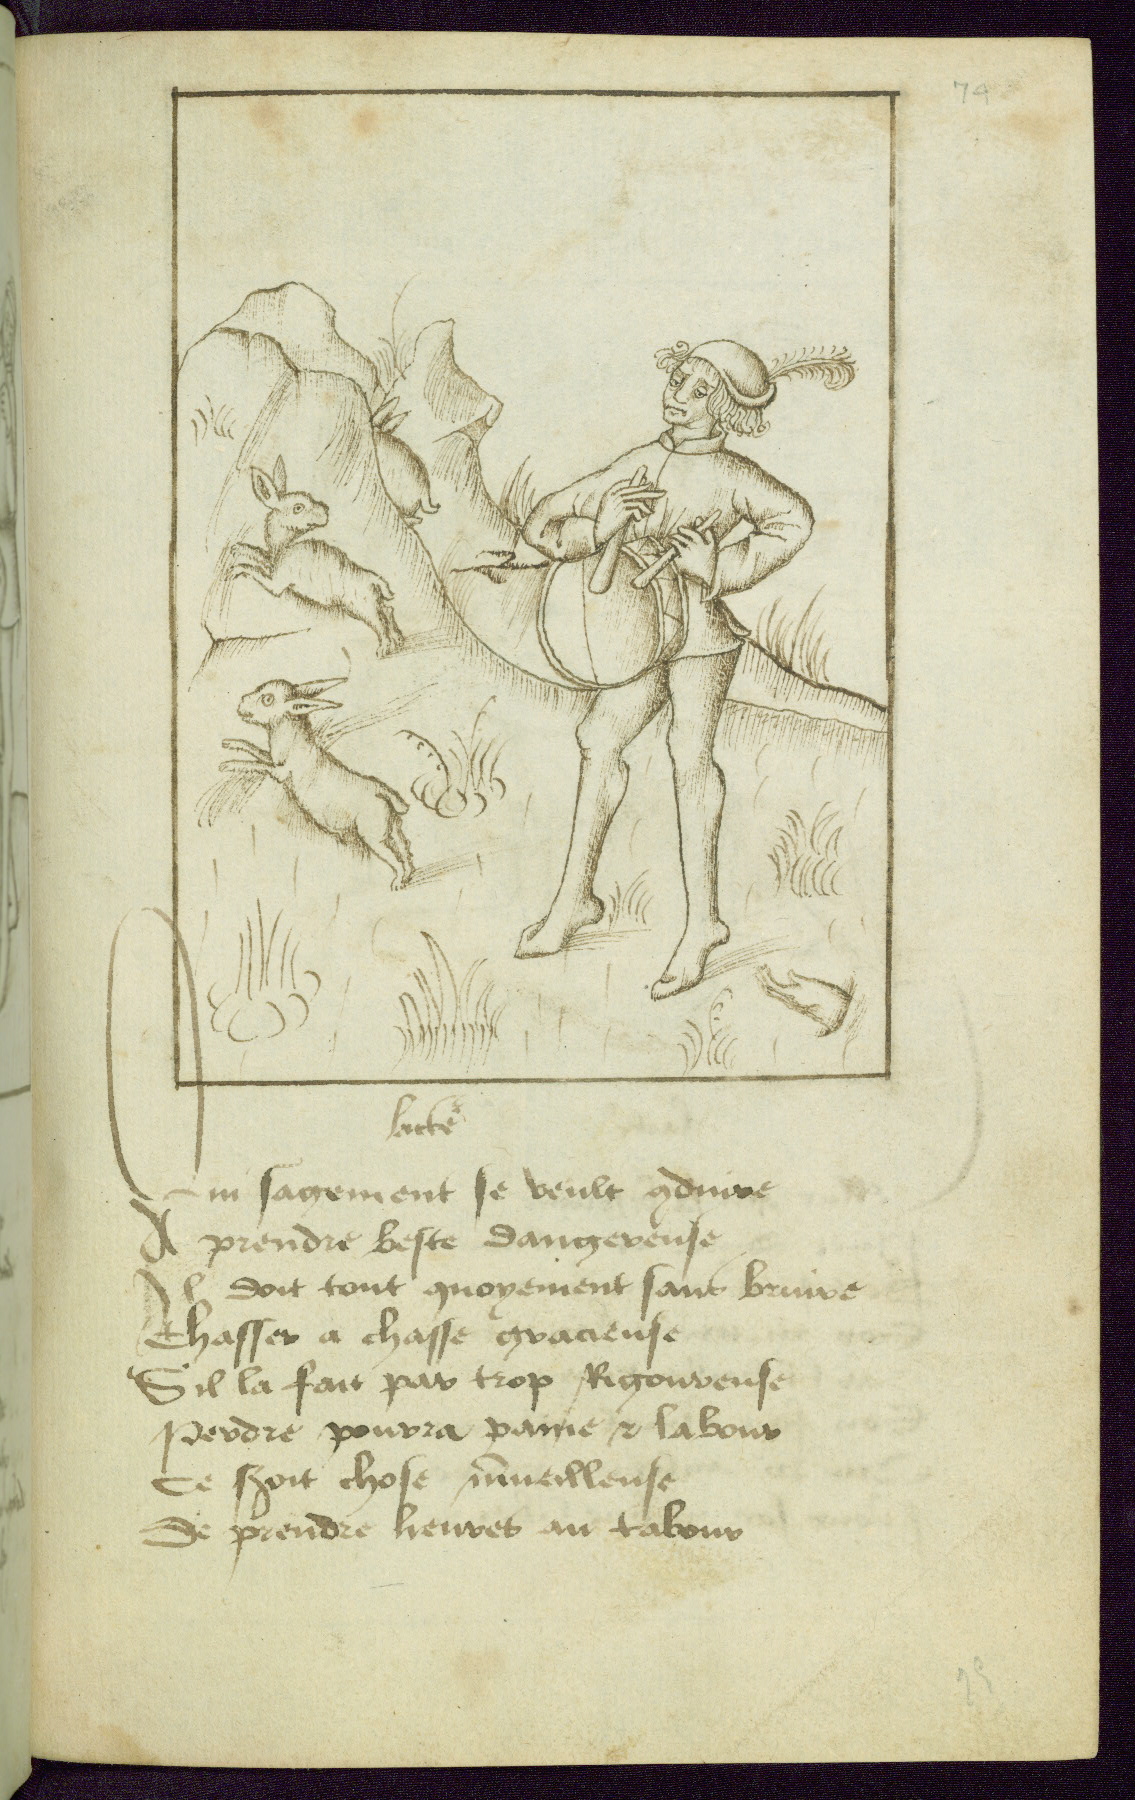 74
lacteᷣ
Qui sagement se veult ꝯduire
A prendre beste dangereuse
Il doit tout quoyement sans bruire
Chasser a chasse gracieuse
Sil la fait par trop Rigoureuse
Perdre pourra paine ⁊ labour
Ce szoit chose m̃ueilleuse
De prendre lieures au tabour